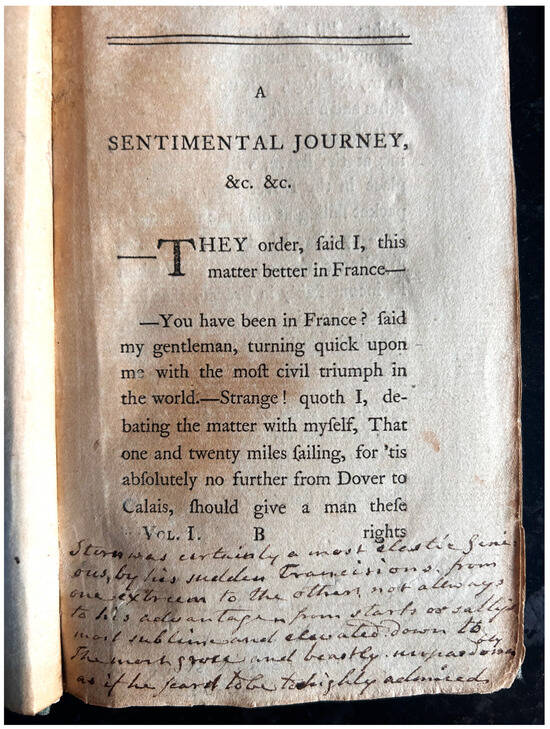 A
SENTIMENTAL JOURNEY,
&c. &c.
—THEY order, ſaid I, this
matter better in France—
—You have been in France? ſaid
my gentleman, turning quick upon
me with the moſt civil triumph in
the world.—Strange! quoth I, de-
bating the matter with myſelf, That
one and twenty miles ſailing, for 'tis
abſolutely no further from Dover to
Calais, ſhould give a man theſe
VOL. I. B rights
Stern was certainly a most elastic Geni
ous, by his sudden Trancisions, from
one extream to the other, not allways
to his advantage, from starts or sally's
most sublime and elevated down to
The most gross and beastly.
as if he feard to be to highly admired